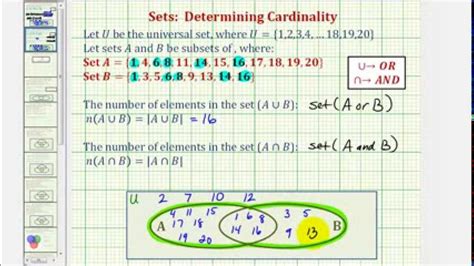 Sets: Determining Cardinality
Let U be the universal set, where U = {1,2,3,4, ... 18,19,20}
Let sets A and B be subsets of , where:
Set A = {1, 4, 6, 8, 11, 14, 15, 16, 17, 18, 19, 20}
Set B = {1, 3, 5, 6, 8, 9, 13, 14, 16}
∪→ OR
∩→ AND
The number of elements in the set (A ∪ B): set (A or B)
n(A ∪ B) = |A ∪ B| = 16
The number of elements in the set (A ∩ B): set (A and B)
n(A ∩ B) = |A ∩ B|
U 2 7 10 12
4 11 15 1 6 8 3 5
A 17 18 14 16 9 13 B
19 20